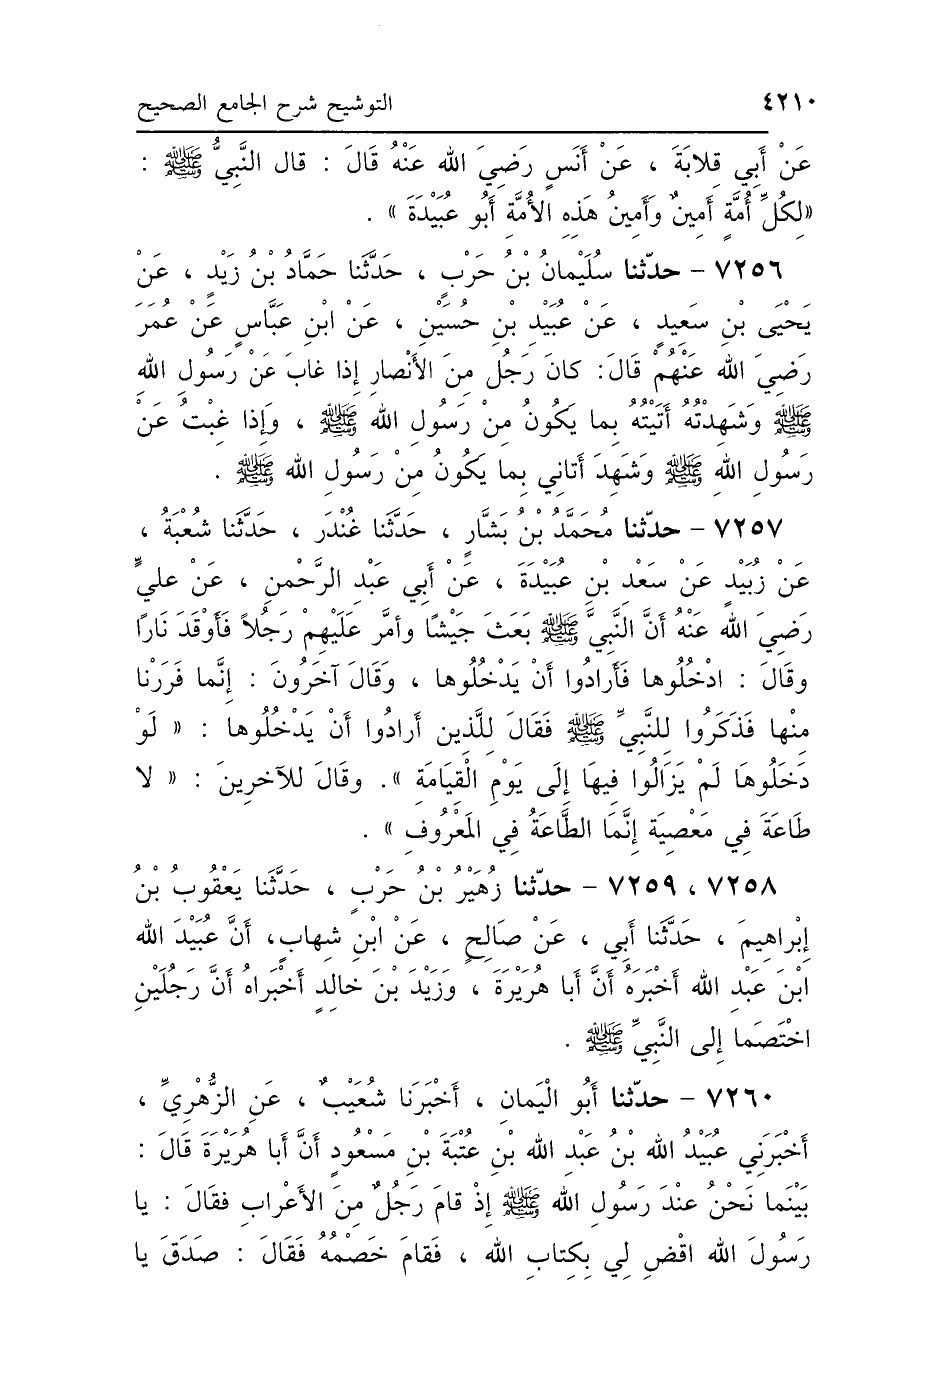 ٤٢١٠ التوشيح شرح الجامع الصحيح
عَنْ أَبِي قِلابَةَ ، عَنْ أَنَسٍ رَضِيَ الله عَنْهُ قَالَ : قال النَّبِيُّ ﷺ :
«لِكُلِّ أُمَّةٍ أَمِينٌ وَأَمِينُ هَذِهِ الأُمَّةِ أَبُو عُبَيْدَةَ» .
٧٢٥٦ – حدّثنا سُلَيْمانُ بْنُ حَرْبٍ ، حَدَّثَنا حَمَّادُ بْنُ زَيْدٍ ، عَنْ
يَحْيَى بْنِ سَعِيدٍ ، عَنْ عُبَيْدِ بْنِ حُسَيْنٍ ، عَنِ ابْنِ عَبَّاسٍ عَنْ عُمَرَ
رَضِيَ الله عَنْهُمْ قَالَ: كانَ رَجُلٌ مِنَ الأَنْصارِ إذا غابَ عَنْ رَسُولِ الله
ﷺ وَشَهِدْتُهُ أَتَيْتُهُ بِما يَكُونُ مِنْ رَسُولِ الله ﷺ ، وَإذا غِبْتُ عَنْ
رَسُولِ الله ﷺ وَشَهِدَ أَتاني بِما يَكُونُ مِنْ رَسُولِ الله ﷺ .
٧٢٥٧ – حدّثنا مُحَمَّدُ بْنُ بَشَّارٍ ، حَدَّثَنا غُنْدَر ، حَدَّثَنا شُعْبَةُ ،
عَنْ زُبَيْدٍ عَنْ سَعْدِ بْنِ عُبَيْدَةَ ، عَنْ أَبِي عَبْدِ الرَّحْمنِ ، عَنْ عليٍّ
رَضِيَ الله عَنْهُ أَنَّ النَّبِيَّ ﷺ بَعَثَ جَيْشًا وأمَّر عَلَيْهِمْ رَجُلاً فَأَوْقَدَ نَارًا
وقَالَ : ادْخُلُوها فَأَرادُوا أَنْ يَدْخُلُوها ، وَقَالَ آخَرُونَ : إنَّما فَرَرْنا
مِنْها فَذَكَرُوا للنَّبِيِّ ﷺ فَقَالَ للَّذِين أرادُوا أَنْ يَدْخُلُوها : « لَوْ
دَخَلُوهَا لَمْ يَزَالُوا فِيهَا إِلَى يَوْمِ الْقِيَامَةِ ». وقَالَ للآخرِينَ : « لا
طَاعَةَ فِي مَعْصِيَةٍ إنَّمَا الطَّاعَةُ فِي المَعْرُوفِ » .
٧٢٥٨ ، ٧٢٥٩ – حدّثنا زُهَيْرُ بْنُ حَرْبٍ ، حَدَّثَنا يَعْقُوبُ بْنُ
إبْراهِيمَ ، حَدَّثَنا أَبِي ، عَنْ صَالِحٍ ، عَنْ ابْنِ شِهابٍ، أَنَّ عُبَيْدَ الله
ابْنَ عَبْدِ الله أَخْبَرَهُ أَنَّ أَبا هُرَيْرَةَ ، وَزَيْدَ بْنَ خالِدٍ أَخْبَراهُ أَنَّ رَجُلَيْنِ
اخْتَصَما إلى النَّبِيِّ ﷺ .
٧٢٦٠ – حدّثنا أَبُو الْيَمانِ ، أَخْبَرَنا شُعَيْبٌ ، عَنِ الزُّهْرِيِّ ،
أَخْبَرَنِي عُبَيْدُ الله بْنُ عَبْدِ الله بْنِ عُتْبَةَ بْنِ مَسْعُودٍ أَنَّ أَبا هُرَيْرَةَ قَالَ :
بَيْنَما نَحْنُ عِنْدَ رَسُولِ الله ﷺ إذْ قامَ رَجُلٌ مِنَ الأَعْرابِ فقَالَ : يا
رَسُولَ الله اقْضِ لِي بِكِتابِ الله ، فَقامَ خَصْمُهُ فَقَالَ : صَدَقَ يا